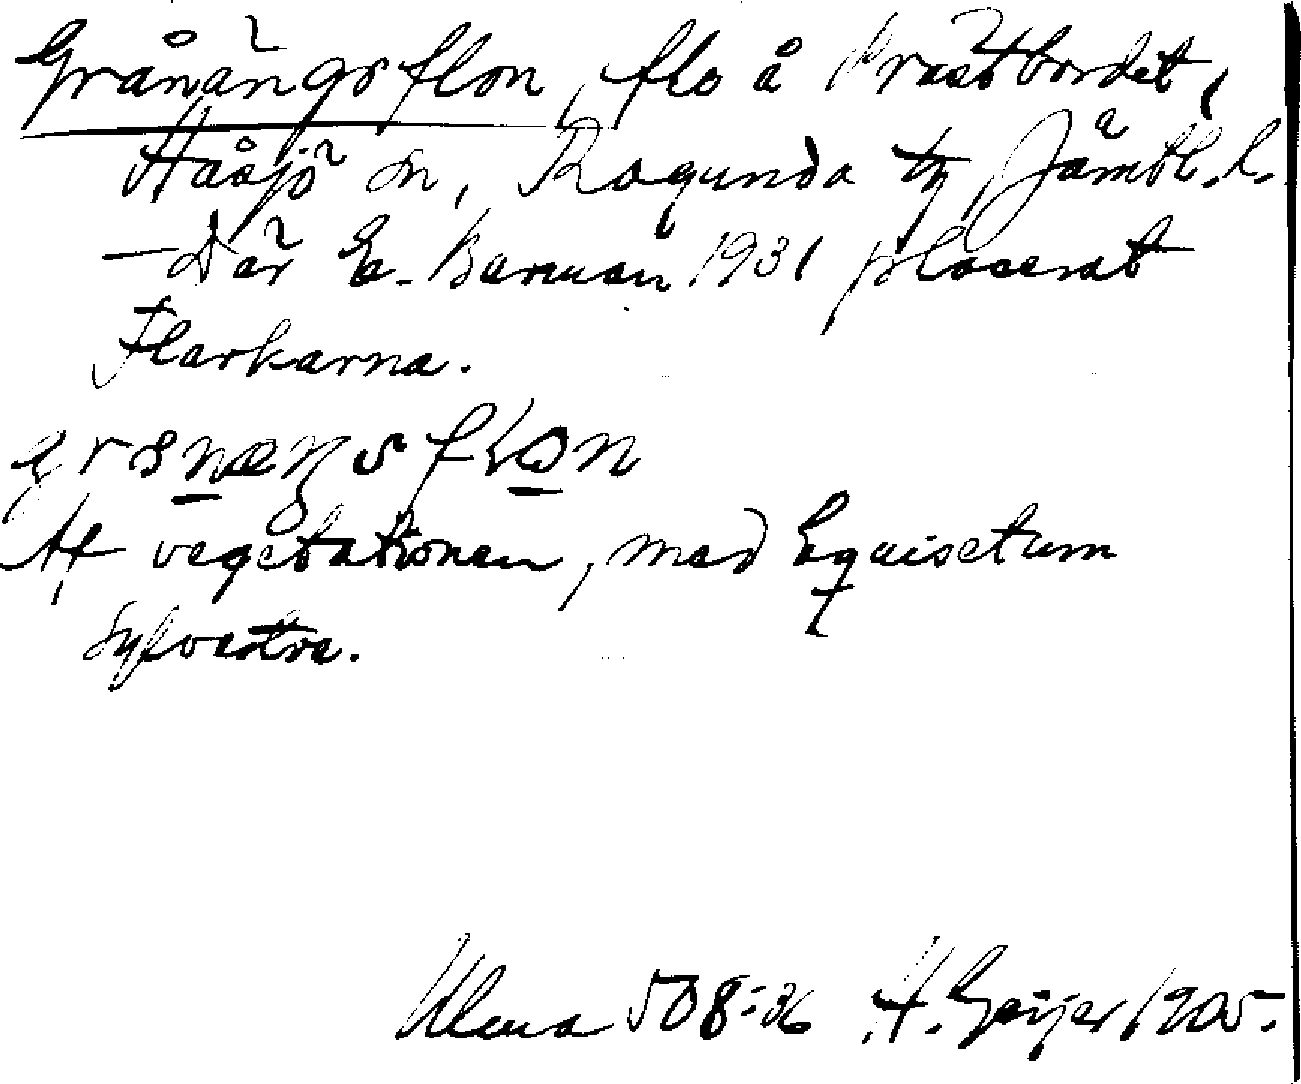 Grånängsflon, flo å Prästbordet,
Håsjö sn, Ragunda tg Jämtl. l.
— Där E. Barman 1931 placerat
Flarkarna.
Af vegetationen, med Equisetum
sylvestre.
Ulma 508:36 H. Geijer 1905.